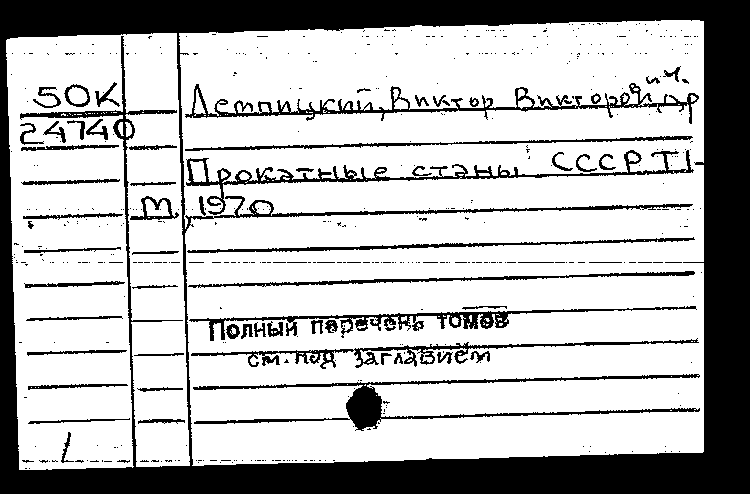 50К
24740
Лемпицкий, Виктор Викторович. и др
Прокатные станы СССР Т1-
М, 1970
Полный перечень томов
см. под заглавием
1